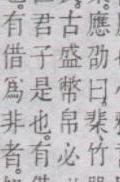 應劭曰。棐竹
古盛幣帛必
君子是也。有
有借爲非者。